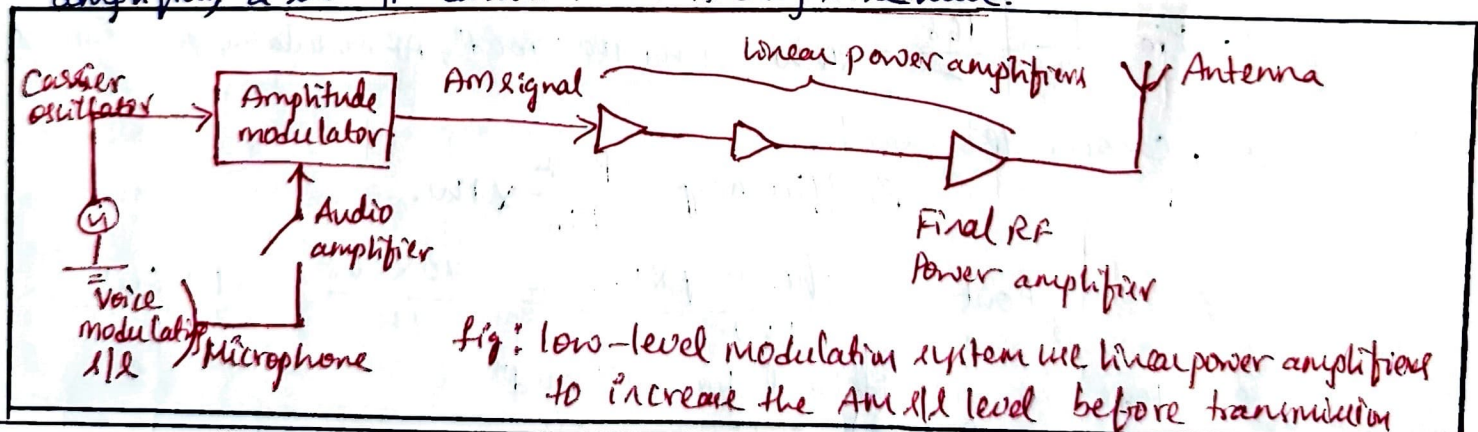 Linear power amplifiers
Carrier
oscillator
Amplitude
modulator
AM signal
Antenna
Audio
amplifier
Final RF
Power amplifier
Voice
modulating
s/l
Microphone
fig: low-level modulation system use linear power amplifiers
to increase the AM s/l level before transmission